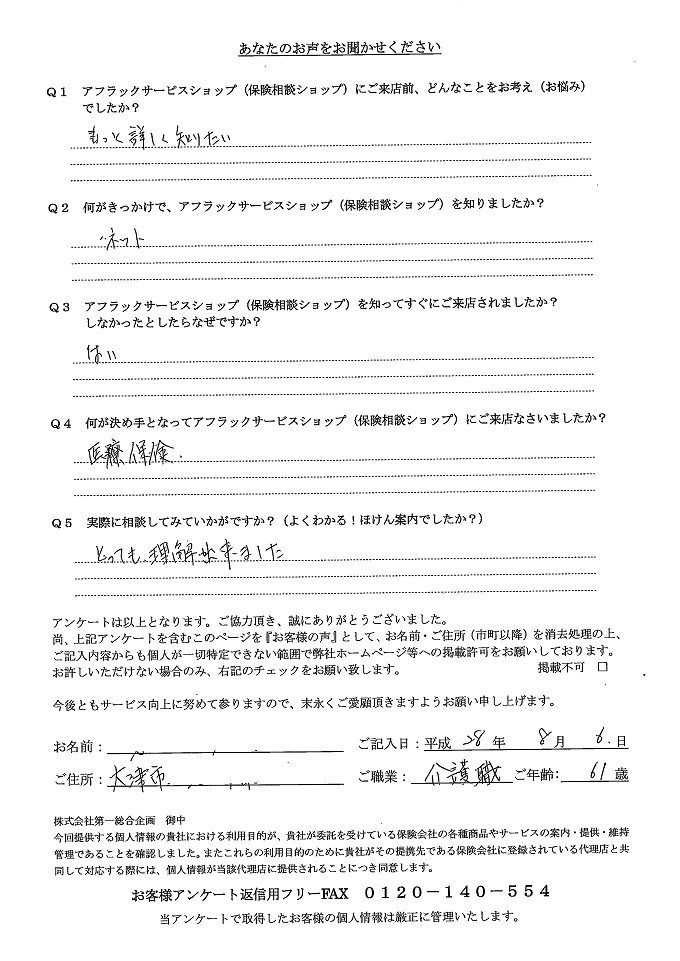 あなたのお声をお聞かせください
Q1 アフラックサービスショップ（保険相談ショップ）にご来店前、どんなことをお考え（お悩み）
でしたか？
もっと詳しく知りたい
Q2 何がきっかけで、アフラックサービスショップ（保険相談ショップ）を知りましたか？
ネット
Q3 アフラックサービスショップ（保険相談ショップ）を知ってすぐにご来店されましたか？
しなかったとしたらなぜですか？
はい
Q4 何が決め手となってアフラックサービスショップ（保険相談ショップ）にご来店なさいましたか？
医療保険.
Q5 実際に相談してみていかがですか？（よくわかる！ほけん案内でしたか？）
とっても、理解が出来ました
アンケートは以上となります。ご協力頂き、誠にありがとうございました。
尚、上記アンケートを含むこのページを『お客様の声』として、お名前・ご住所（市町以降）を消去処理の上、
ご記入内容からも個人が一切特定できない範囲で弊社ホームページ等への掲載許可をお願いしております。
お許しいただけない場合のみ、右記のチェックをお願い致します。 掲載不可 □
今後ともサービス向上に努めて参りますので、末永くご愛顧頂きますようお願い申し上げます。
お名前： ご記入日：平成 28 年 8 月 6 . 日
ご住所： 大津市 ご職業： 介護職 ご年齢： 61 歳
株式会社第一総合企画 御中
今回提供する個人情報の貴社における利用目的が、貴社が委託を受けている保険会社の各種商品やサービスの案内・提供・維持
管理であることを確認しました。またこれらの利用目的のために貴社がその提携先である保険会社に登録されている代理店と共
同して対応する際には、個人情報が当該代理店に提供されることにつき同意します。
お客様アンケート返信用フリーFAX 0120－140－554
当アンケートで取得したお客様の個人情報は厳正に管理いたします。